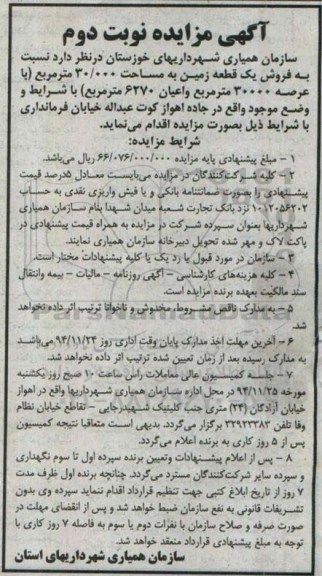 آگهی مزایده نوبت دوم
سازمان همیاری شهرداریهای خوزستان درنظر دارد نسبت
به فروش یک قطعه زمین به مساحت ۳۰/۰۰۰ مترمربع (با
عرصه ۳۰۰۰۰ مترمربع واعیان ۶۲۷۰ مترمربع) با شرایط و
وضع موجود واقع در جاده اهواز کوت عبداله خیابان فرمانداری
با شرایط ذیل بصورت مزایده اقدام می‌نماید.
شرایط مزایده:
۱ – مبلغ پیشنهادی پایه مزایده ۶۶/۰۷۶/۰۰۰/۰۰۰ ریال می‌باشد.
۲ – کلیه شرکت‌کنندگان در مزایده می‌بایست معادل ۵درصد قیمت
پیشنهادی را بصورت ضمانتنامه بانکی و یا فیش واریزی نقدی به حساب
۱۰۱۲۰۵۶۲۰۲ نزد بانک تجارت شعبه میدان شهدا بنام سازمان همیاری
شهرداریها بعنوان سپرده شرکت در مزایده به همراه قیمت پیشنهادی در
پاکت لاک و مهر شده تحویل دبیرخانه سازمان همیاری نمایند.
۳ – سازمان در مورد قبول یا رد یک یا کلیه پیشنهادات مختار است.
۴ – کلیه هزینه‌های کارشناسی – آگهی روزنامه – مالیات – بیمه وانتقال
سند مالکیت بعهده برنده مزایده است.
۵ – به مدارک ناقص مشروط، مخدوش و ناخوانا ترتیب اثر داده نخواهد
شد.
۶ – آخرین مهلت اخذ مدارک پایان وقت اداری روز ۹۴/۱۱/۲۴ می‌باشد
به مدارک رسیده بعد از زمان تعیین شده ترتیب اثر داده نخواهد شد.
۷ – جلسه کمیسیون عالی معاملات راس ساعت ۱۰ صبح روز یکشنبه
مورخه ۹۴/۱۱/۲۵ در محل اداره سازمان همیاری شهرداریها واقع در اهواز
خیابان آزادگان (۲۴) متری جنب کلینیک شهیدرجایی – تقاطع خیابان نظام
وفا تلفن ۳۲۹۲۳۳۸۳ برگزار می‌گردد. بدیهی است متعاقبا نتیجه کمیسیون
پس از ۵ روز کاری به برنده اعلام می‌گردد.
۸ – پس از اعلام پیشنهادات وتعیین برنده سپرده اول تا سوم نگهداری
و سپرده سایر شرکت‌کنندگان مسترد می‌گردد. چنانچه برنده اول ظرف مدت
۷ روز از تاریخ ابلاغ کتبی جهت تنظیم قرارداد اقدام ننماید سپرده وی بدون
تشریفات قانونی به نفع سازمان ضبط خواهد شد و پس از انقضای مهلت در
صورت صرفه و صلاح سازمان با نفرات دوم یا سوم به فاصله ۷ روز کاری با
توجه به مبلغ پیشنهادی قرارداد منعقد خواهد شد.
سازمان همیاری شهرداریهای استان